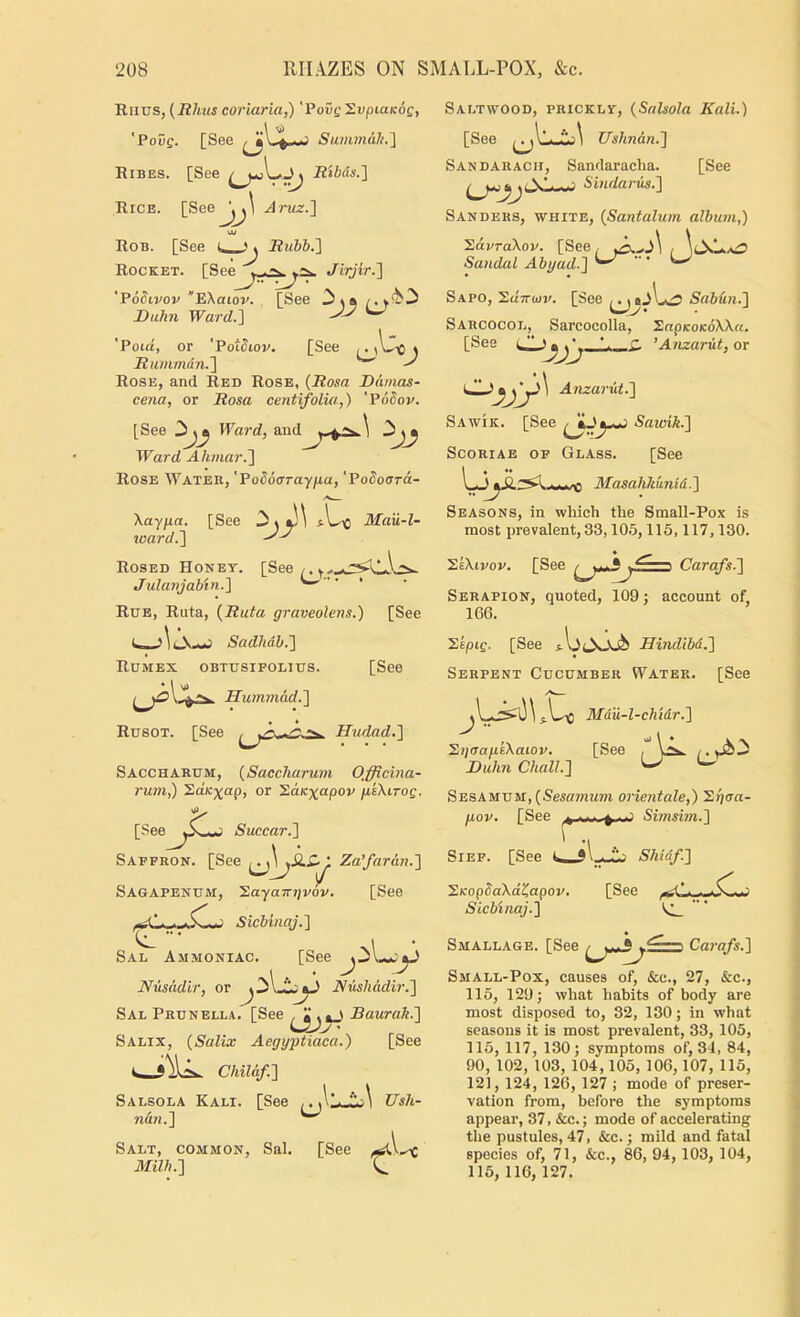 208 RHAZES ON SMALL-POX, &c.
Rhus, (Rhus coriaria,) 'Ροῦς Συριακός,
'Ροῦς. [See سماق Summák.]
Ribes. [See ريباس Ribás.]
Rice. [See ارز Aruz.]
Rob. [See رب Rubb.]
Rocket. [See جرجير Jirjír.]
'Ρόδινον Ἔλαιον. [See دهن ورد
Duhn Ward.]
'Ροιά, or 'Ροΐδιον. [See رمان
Rummán.]
Rose, and Red Rose, (Rosa Damas-
cena, or Rosa centifolia,) 'Ρόδον.
[See ورد Ward, and ورد احمر
Ward Ahmar.]
Rose Water, 'Ροδόσταγμα, 'Ροδοστά-
λαγμα. [See ماء الورد Maü-l-
ward.]
Rosed Honey. [See جلنجبين
Julanjabín.]
Rue, Ruta, (Ruta graveolens.) [See
سذاب Sadháb.]
Rumex obtusifolius. [See
حماض Hummád.]
Rusot. [See حضض Hudad.]
Saccharum, (Saccharum Officina-
rum,) Σάκχαρ, or Σάκχαρον μέλιτος.
[See سكر Succar.]
Saffron. [See زعفران Za'farán.]
Sagapenum, Σαγαπηνόν. [See
سكبينج Sicbínaj.]
Sal Ammoniac. [See نوسادر
Núsádir, or نوشادر Núshádir.]
Sal Prunella. [See بورق Baurak.]
Salix, (Salix Aegyptiaca.) [See
خلاف Chiláf.]
Salsola Kali. [See اشنان Ush-
nán.]
Salt, common, Sal. [See ملح
Milh.]
Saltwood, prickly, (Salsola Kali.)
[See اشنان Ushnán.]
Sandarach, Sandaracha. [See
سندروس Sindarús.]
Sanders, white, (Santalum album,)
Σάνταλον. [See صندل ابيض
Sandal Abyad.]
Sapo, Σάπων. [See صابون Sabún.]
Sarcocol, Sarcocolla, Σαρκοκόλλα.
[See عنزروت 'Anzarút, or
انزروت Anzarút.]
Sawík. [See سويق Sawík.]
Scoriae of Glass. [See
مسحقونيا Masahkúniá.]
Seasons, in which the Small-Pox is
most prevalent, 33, 105, 115, 117, 130.
Σέλινον. [See كرفس Carafs.]
Serapion, quoted, 109; account of,
166.
Σέρις. [See هندباء Hindibá.]
Serpent Cucumber Water. [See
ماء الخيار Máü-l-chiár.]
Σησαμέλαιον. [See دهن خل
Duhn Chall.]
Sesamum, (Sesamum orientale,) Σήσα-
μον. [See سمسم Simsim.]
Sief. [See شياف Shíáf.]
Σκορδαλάζαρον. [See سكبينج
Sicbínaj.]
Smallage. [See كرفس Carafs.]
Small-Pox, causes of, &c., 27, &c.,
115, 129; what habits of body are
most disposed to, 32, 130; in what
seasons it is most prevalent, 33, 105,
115, 117, 130; symptoms of, 34, 84,
90, 102, 103, 104, 105, 106, 107, 115,
121, 124, 126, 127; mode of preser-
vation from, before the symptoms
appear, 37, &c.; mode of accelerating
the pustules, 47, &c.; mild and fatal
species of, 71, &c., 86, 94, 103, 104,
115, 116, 127.